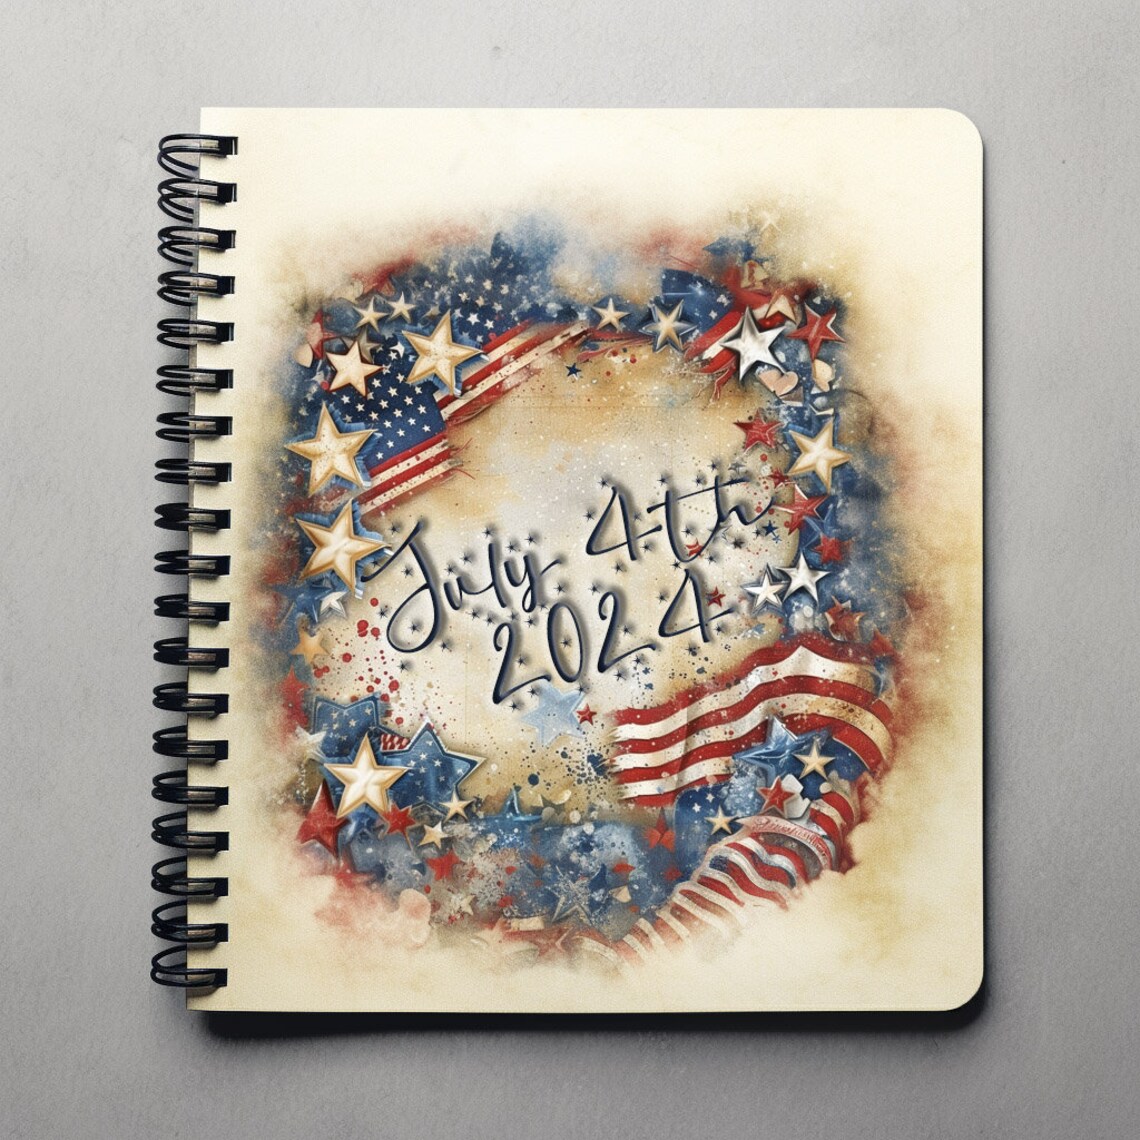 July 4th
2024